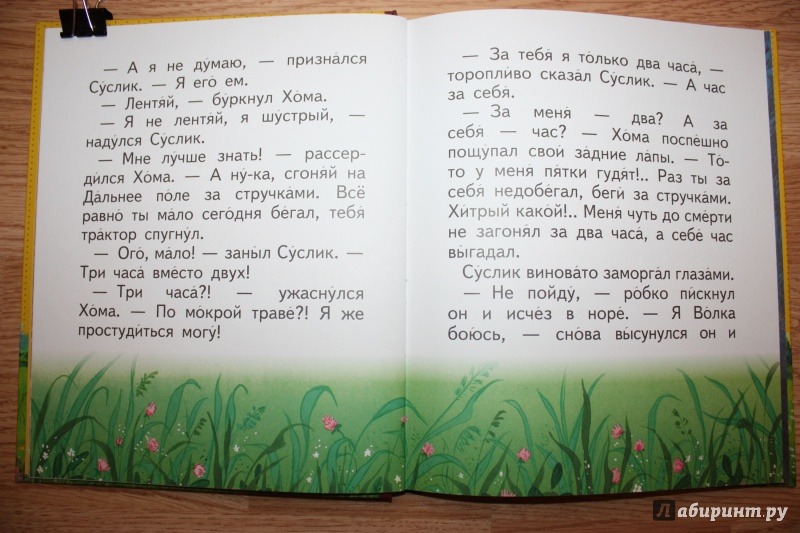 — А я не ду́маю, — призна́лся
Су́слик. — Я его́ ем.
— Лентя́й, — бу́ркнул Хо́ма.
— Я не лентя́й, я шу́стрый, —
наду́лся Су́слик.
— Мне лу́чше знать! — рассер-
ди́лся Хо́ма. — А ну́-ка, сгоня́й на
Да́льнее по́ле за стручка́ми. Всё
равно́ ты ма́ло сего́дня бе́гал, тебя́
тра́ктор спугну́л.
— Ого́, ма́ло! — заны́л Су́слик. —
Три часа́ вме́сто двух!
— Три часа́?! — ужасну́лся
Хо́ма. — По мо́крой траве́?! Я же
простуди́ться могу́!
— За тебя́ я то́лько два часа́, —
торопли́во сказа́л Су́слик. — А час
за себя́.
— За меня́ — два? А за
себя́ — час? — Хо́ма поспе́шно
пощу́пал свои́ за́дние ла́пы. — То́-
то у меня́ пя́тки гудя́т!.. Раз ты за
себя́ недобе́гал, беги́ за стручка́ми.
Хи́трый како́й!.. Меня́ чуть до сме́рти
не загоня́л за два часа́, а себе́ час
вы́гадал.
Су́слик винова́то заморга́л глаза́ми.
— Не пойду́, — ро́бко пи́скнул
он и исче́з в норе́. — Я Во́лка
бою́сь, — сно́ва вы́сунулся он и
Лабиринт.ру